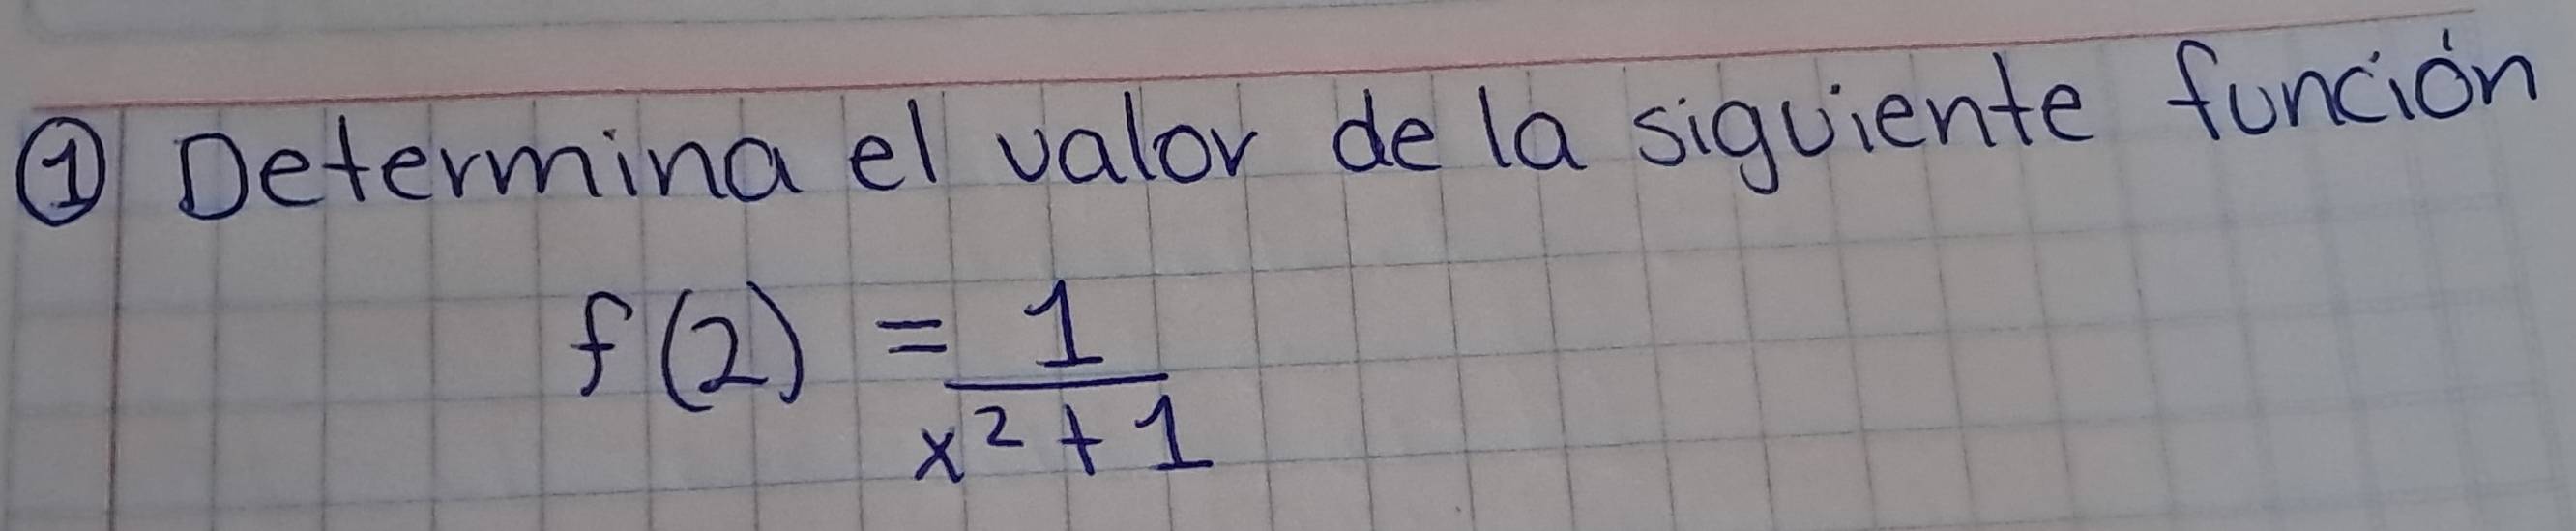 ① Determina el valor de la siguiente función
f(2) = 1
x² + 1